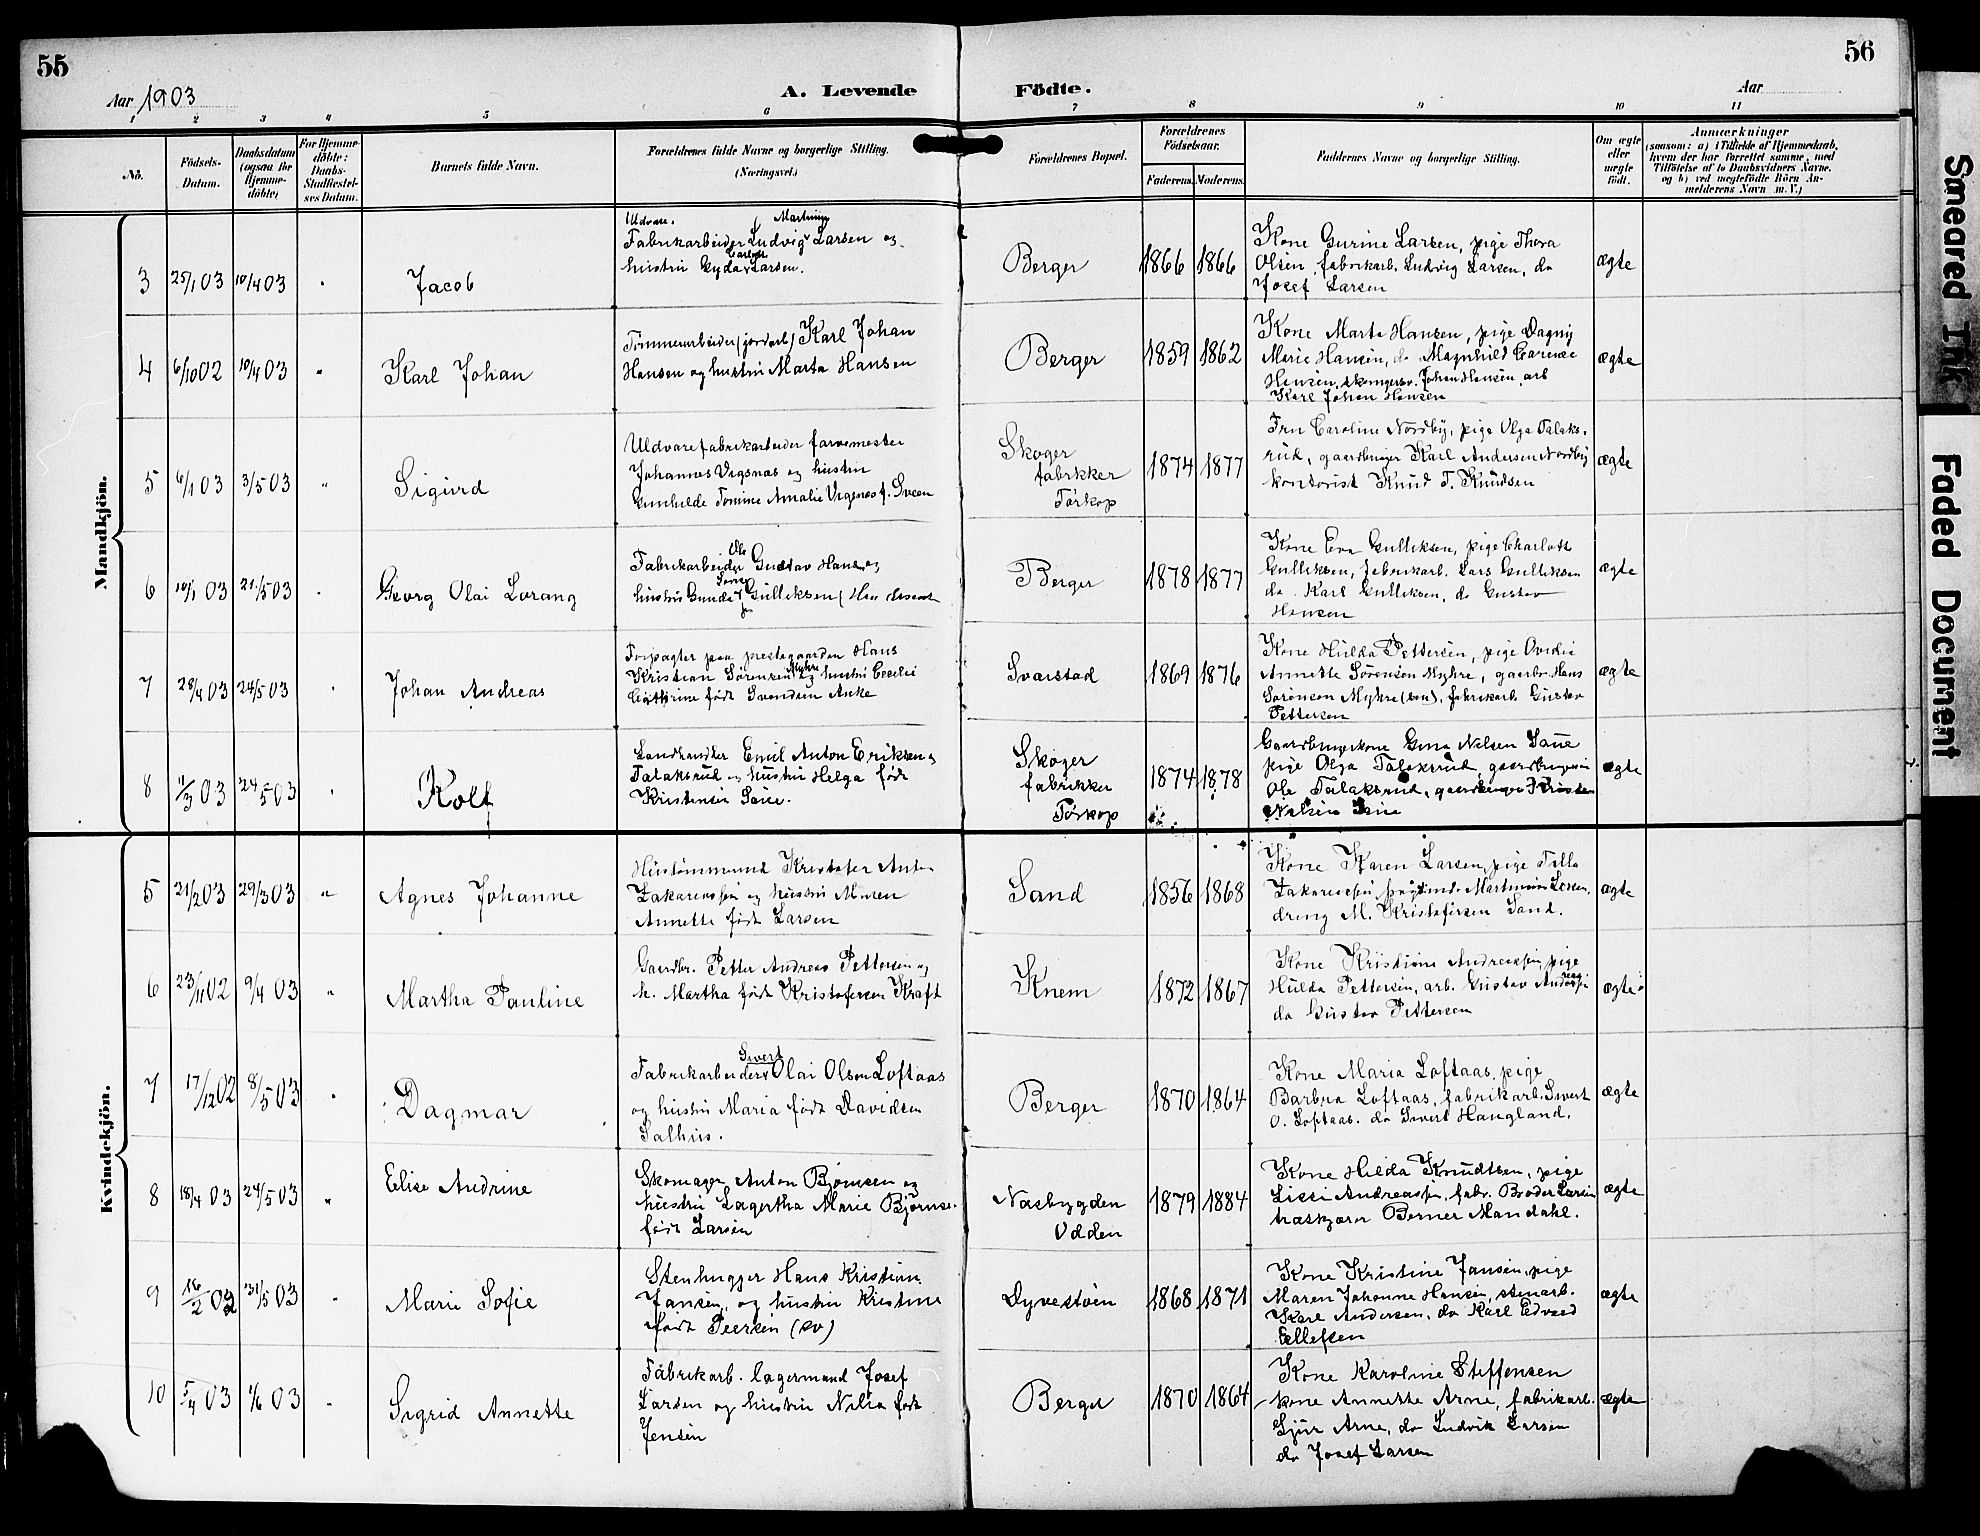 55
56
Aar 1903
A. Levende Födte.
Aar
1 2 3 4 5 6 7 8 9 10 11
No.
Födsels-Datum.
Daabsdatum (ogsaa for Hjemme-döbte)
For Hjemme-döbte: Daabs-Stadfæstel-ses Datum.
Barnets fulde Navn.
Forældrenes fulde Navne og borgerlige Stilling. (Næringsvei.)
Forældrenes Bopæl.
Forældrenes Födselsaar.
Faderens. Moderens.
Faddernes Navne og borgerlige Stilling.
Om ægte eller uægte födt.
Anmærkninger
(saasom: a) i Tilfælde af Hjemmedaab,
hvem der har forrettet samme, med
Tilföielse af to Daabsvidners Navne.
og b) ved uægtefödte Börn An-
melderens Navn m. V.)
Mandkjön.
3 25/1 03 10/4 03 Jacob
Uldvare. Martinius
Fabrikarbeider Ludvig Larsen og
hustru Gyda Larsen.
Berger 1866 1866
Kone Gurine Larsen, pige Thora
Olsen, fabrikarb. Ludvig Larsen, do
Josef Larsen
ægte
4 6/10 02 10/4 03 " Karl Johan
Tömmerarbeider (jordarb) Karl Johan
Hansen og hustru Marta Hansen
Berger 1859 1862
Kone Marta Hansen, pige Dagny
Marie Hansen, do Magnhild
Hansen, Johan Hansen, arb
Karl Johan Hansen
ægte
5 6/1 03 3/5 03 " Sigurd
Uldvarefabrikarbeider farvemester
Johannes Vegsnæs og hustru
Gunhilde Tomine Amalie f. Sveen
Skoger fabrikker Törkop
1874 1877
Fru Caroline Nordby, pige Olga Talaks-
rud, gaardbruger Karl Andersen Nordby
kontorist Knud T. Knudsen
ægte
6 10/1 03 21/5 03 Georg Olai Lorang
Fabrikarbeider Ole Gustav Hansen og
hustru Gunda Gulliksen
Berger 1878 1877
Kone Eva Gulliksen, pige Charlotte
Gulliksen, fabrikarb. Lars Gulliksen
do Karl Gulliksen, do Gustav
Hansen
ægte
7 28/4 03 24/5 03 Johan Andreas
Forpagter paa prestegaarden Hans
Kristian Sörensen Myhre og hustru Cecilie
Cathrine födt Svendsen Anke
Svarstad 1869 1876
Kone Hulda Pettersen, pige Ovidia
Annette Sörensen Myhre, gaardbr. Hans
Sörensen Myhre (sen), fabrikarb. Gustav
Pettersen
ægte
8 11/3 03 24/5 03 Rolf
Landhandler Emil Anton Eriksen
Talaksrud og hustru Helga födt
Kristensen Saue.
Skoger fabrikker Törkop
1874 1878
Gaardbrugerkone Gina Nelsen Saue
pige Olga Talaksrud, gaardbruger
Ole Talaksrud, gaardbruger Kristen
Nelsen Saue
ægte
Kvindekjön.
5 21/2 03 29/3 03 " Agnes Johanne
Hustömmermand Kristofer Anton
Zakariassen og hustru Maren
Annette födt Larsen
Sand 1856 1868
Kone Karen Larsen, pige Tilla
Zakariassen, Martinius Larsen,
dreng M. Kristofersen Sand.
ægte
6 23/11 02 9/4 03 " Martha Pauline
Gaardbr. Petter Andreas Pettersen og
h. Martha födt Kristofersen Kraft
Knem 1872 1867
Kone Kristiane Andreassen, pige
Hulda Pettersen, arb. Gustav Andreassen
do Gustav Pettersen
ægte
7 17/12 02 8/5 03 Dagmar
Sivert
Fabrikarbeider Olai Olsen Loftaas
og hustru Maria födt Davidsen
Salhus.
Berger 1870 1864
Kone Maria Loftaas, pige
Barbra Loftaas, fabrikarb. Sivert
O. Loftaas. do Sivert Haugland.
ægte
8 18/4 03 24/5 03 " Elise Andrine
Skomager Anton Björnsen og
hustru Lagertha Marie Björnsen
födt Larsen
Næsbygden Odden
1879 1884
Kone Hilda Knudtsen, pige
Lissi Andreassen, fabr. Broder Larsen
træskjærer Berner Mandahl.
ægte
9 16/2 02 31/5 03 " Marie Sofie
Stenhugger Hans Kristian
Jansen, og hustru Kristine
födt Peersen (sv)
Dyvestöen 1868 1871
Kone Kristine Jansen, pige
Maren Johanne Hansen, stenarb.
Karl Andersen, do Karl Edvard
Ellefsen
ægte
10 5/4 03 1/6 03 Sigrid Annette
Fabrikarb. lagermand Josef
Larsen og hustru Nilia födt
Jensen
Berger 1870 1864
Kone Karoline Steffensen
kone Annette Arne, fabrikarb.
Sjur Arne, do Ludvik Larsen
do Josef Larsen
ægte
Smeared Ink
Faded Document